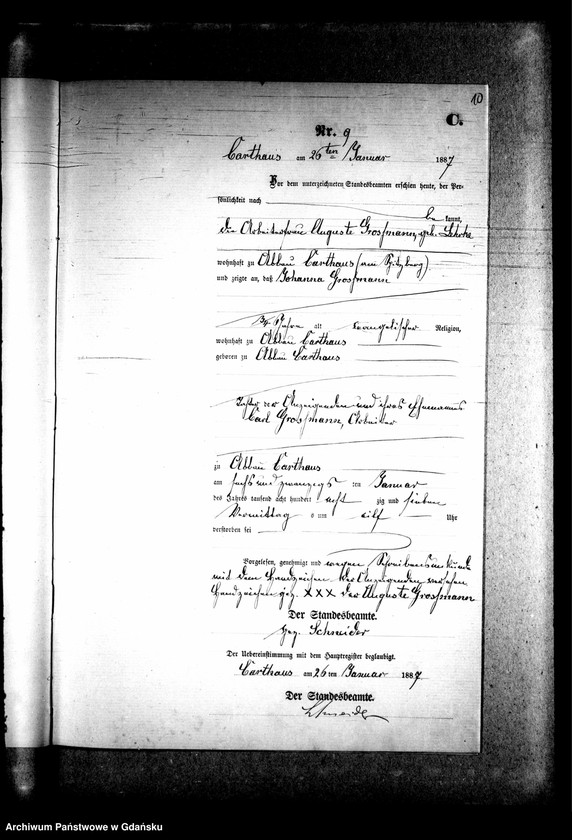 10
C.
Nr. 9
Carthaus am 26ten Januar 1887
Vor dem unterzeichneten Standesbeamten erschien heute, der Per-
sönlichkeit nach
be kannt,
die Arbeiterfrau Auguste Grossmann, geb.
wohnhaft zu Abbau Carthaus (am Spitzberg)
und zeigte an, daß Johanna Grossmann
Jahre alt evangelischer Religion,
wohnhaft zu Abbau Carthaus
geboren zu Abbau Carthaus
Tochter der Anzeigenden und ihres Ehemannes
Carl Grossmann, Arbeiter
zu Abbau Carthaus
am sechs und zwanzigsten Januar
des Jahres tausend acht hundert acht zig und sieben
Vormittags um elf Uhr
verstorben sei
Vorgelesen, genehmigt und wegen Schreibensunkunde
mit dem Handzeichen der Anzeigenden versehen
Handzeichen gez. XXX der Auguste Grossmann
Der Standesbeamte.
gez. Schneider
Der Uebereinstimmung mit dem Hauptregister beglaubigt.
Carthaus am 26 ten Januar 1887
Der Standesbeamte.
Schneider
Archiwum Państwowe w Gdańsku